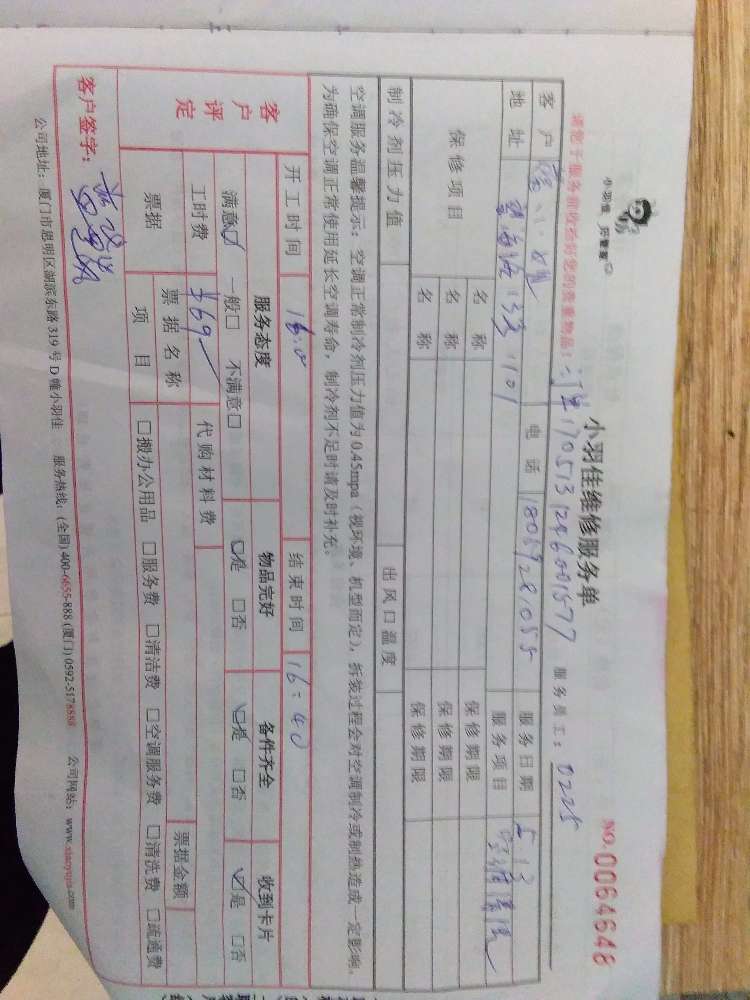 小羽佳 好管家
小羽佳维修服务单
NO.0064648
请您于服务前收检好您的贵重物品！ 1705131246001577 服务员工： 0225
客户 电话 18059281055 服务日期 5.13
地址 13号1101 服务项目
保修项目 名称 保修期限
名称 保修期限
名称 保修期限
制冷剂压力值 出风口温度
空调服务温馨提示：空调正常制冷剂压力值为0.45mpa（视环境、机型而定），拆装过程会对空调制冷或制热造成一定影响，
为确保空调正常使用延长空调寿命，制冷剂不足时请及时补充。
开工时间 16:0 结束时间 16:40
客户评定 服务态度 物品完好 备件齐全 收到卡片
满意☑ 一般□ 不满意□ ☑是 □否 ☑是 □否 ☑是 □否
工时费 ¥69 代购材料费
票据 票据名称 票据金额
项目 □搬办公用品 □服务费 □清洁费 □空调服务费 □清洗费 □疏通费
客户签字：
公司地址：厦门市思明区湖滨东路319号D幢小羽佳 服务热线：(全国)400-6655-888 (厦门)0592-5178888 公司网站：www.xiaoyujia.com